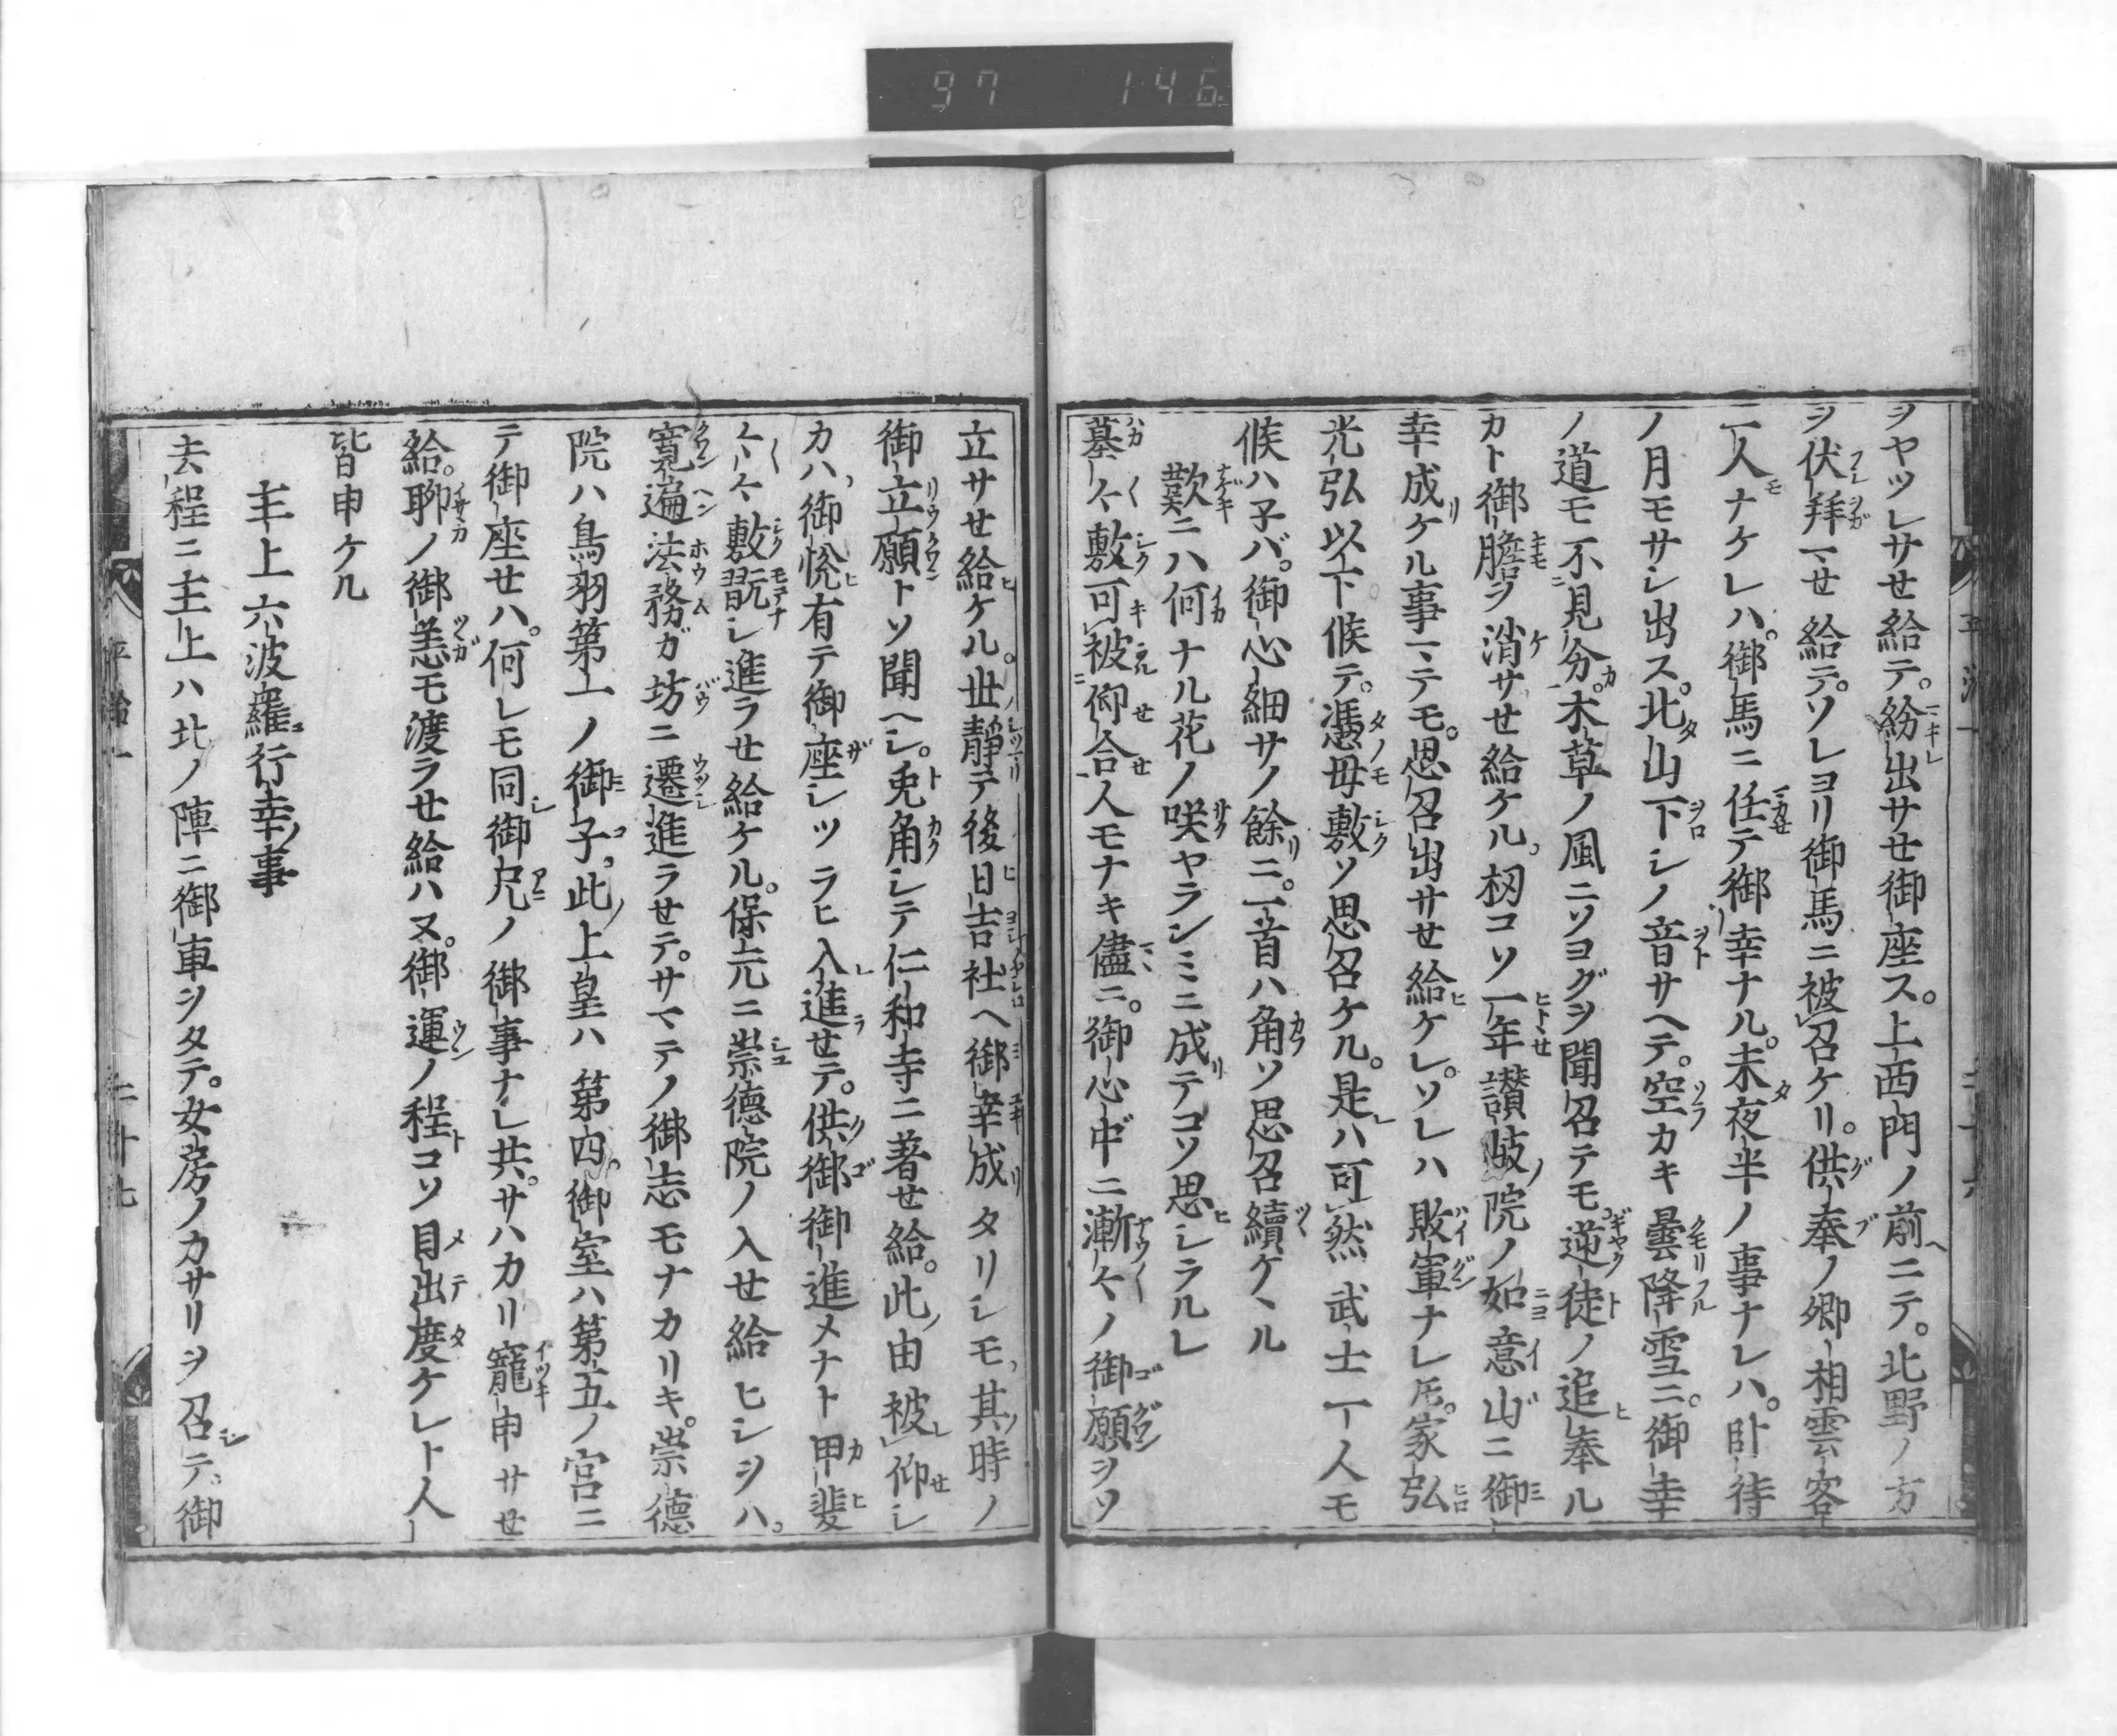 97 146
ヲヤツレサセ給テ。紛出サセ御座ス。上西門ノ前ニテ。北野ノ方
ヲ伏拝マセ給テ。ソレヨリ御馬ニ被召ケリ。供奉ノ卿相雲客
一人モナケレハ。御馬ニ任テ御幸ナル。未夜半ノ事ナレハ。臥待
ノ月モサシ出ス。北山下シノ音サヘテ。空カキ曇降雪ニ。御幸
ノ道モ不見分。木草ノ風ニソヨグヲ聞召テモ逆徒ノ追奉ル
カト御膽ヲ消サセ給ケル。扨コソ一年讃岐院ノ如意山ニ御
幸成ケル事マテモ。思召出サセ給ケレ。ソレハ敗軍ナレ𪜈。家弘
光弘以下候テ。憑母敷ソ思召ケル。是ハ可然武士一人モ
候ハ子バ。御心細サノ餘ニ。一首ハ角ソ思召續ケヽル
歎ニハ何ナル花ノ咲ヤランミニ成テコソ思シラルレ
墓々敷可被仰合人モナキ儘ニ。御心中ニ漸々ノ御願ヲソ
立サセ給ケル。世静テ後日吉社ヘ御幸成タリシモ。其時ノ
御立願トソ聞ヘシ。兎角シテ仁和寺ニ著セ給。此由被仰シ
カハ。御悦有テ御座シツラヒ入進セテ。供御進メナト甲斐
々々敷翫シ進ラセ給ケル。保元ニ崇徳院ノ入セ給ヒシヲハ。
寛遍法務ガ坊ニ遷進ラセテ。サマテノ御志モナカリキ。崇徳
院ハ鳥羽第一ノ御子。此上皇ハ第四。御室ハ第五ノ宮ニ
テ御座セハ。何レモ同御兄ノ御事ナレ共。サハカリ寵申サセ
給。聊ノ御恙モ渡ラセ給ハヌ。御運ノ程コソ目出度ケレト人
皆申ケル
主上六波羅行幸ノ事
去程ニ主上ハ北ノ陣ニ御車ヲタテ。女房ノカサリヲ召テ。御
平治一
二十七